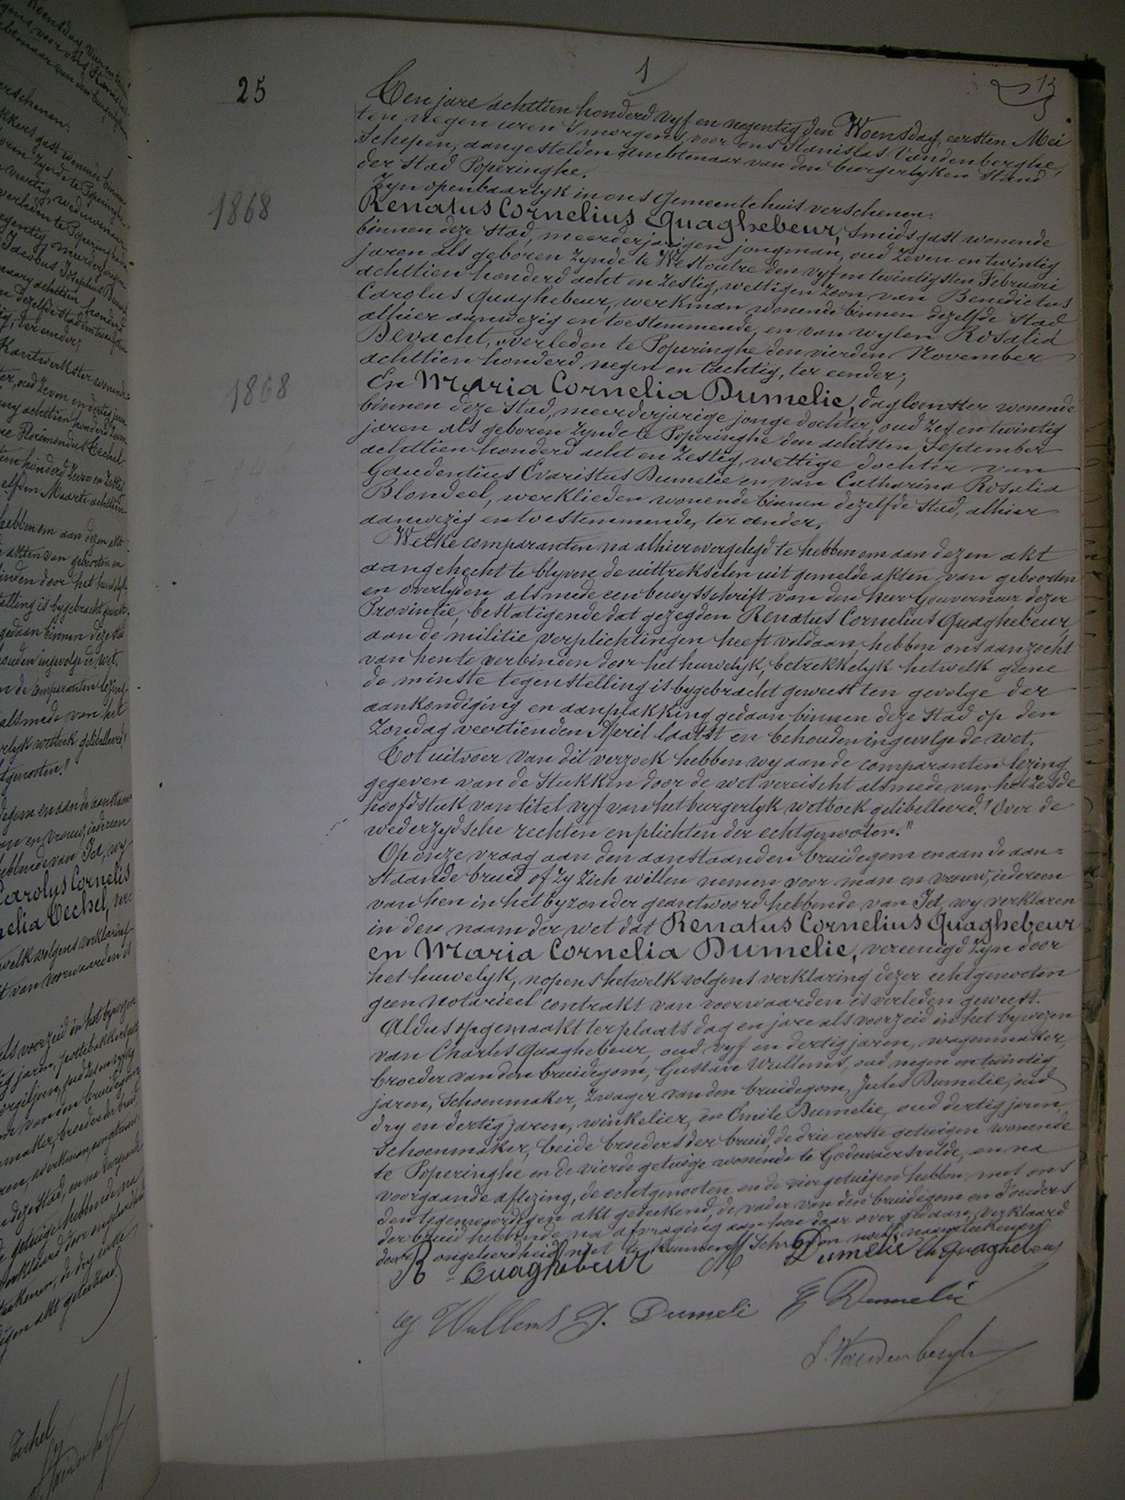 25
1
13
Ten jare achttien honderd vyf en negentig den Woensdag, eersten Mei
ten negen uren 's morgens, voor ons Stanislas Vandenberghe,
Schepen, aangestelden ambtenaar van den burgerlyken stand
der stad Poperinghe.
Zyn openbaarlyk in ons gemeentehuis verschenen:
1868
Renatus Cornelius Quaghebeur, smidsgast wonende
binnen deze stad, meerderjarigen jongman, oud zeven en twintig
jaren als geboren zynde te Westoutre den vyf en twintigsten Februari
achttien honderd acht en zestig, wettigen zoon van Benedictus
Carolus Quaghebeur, werkman wonende binnen dezelfde stad
alhier aanwezig en toestemmende, en van wylen Rosalia
Devacht, overleden te Poperinghe den vierden November
achttien honderd negen en tachtig, ter eender;
1868
En Maria Cornelia Dumelie, dagloonster wonende
binnen deze stad, meerderjarige jonge dochter, oud zes en twintig
jaren als geboren zynde te Poperinghe den achtsten September
achttien honderd acht en zestig, wettige dochter van
Gaudentius Evaristus Dumelie en van Catharina Rosalia
Blondeel, werklieden wonende binnen dezelfde stad, alhier
aanwezig en toestemmende, ter ander.
Welke comparanten na alhier vorgelegd te hebben om aan dezen akt
aangehecht te blyven de uittrekselen uit gemelde akten van geboorten
en overlyden alsmede een bewysschrift van den heer Gouverneur dezer
Provintie, bestatigende dat gezegden Renatus Cornelius Quaghebeur,
aan de militie verplichtingen heeft voldaan, hebben ons aanzocht
van hen te verbinden door het huwelyk, betrekkelyk hetwelk geene
de minste tegenstelling is bygebracht geweest ten gevolge der
aankondiging en aanplakking gedaan binnen deze stad op den
Zondag veertienden April laatst en behouden ingevolge de wet.
Tot uitvoer van dit verzoek hebben wy aan de comparanten lezing
gegeven van de stukken door de wet vereischt alsmede van het zesde
hoofdstuk van titel vyf van het burgerlyk wetboek gelibelleerd: "Over de
wederzydsche rechten en plichten der echtgenooten."
Op onze vraag aan den aanstaanden bruidegom en aan de aan=
staande bruid of zy zich willen nemen voor man en vrouw, iedereen
van hen in het byzonder geantwoord hebbende van Ja, wy verklaren
in den naam der wet dat Renatus Cornelius Quaghebeur
en Maria Cornelia Dumelie, vereenigd zyn door
het huwelyk, nopens hetwelk volgens verklaring dezer echtgenooten
geen notarieel contrakt van voorwaarden is verleden geweest.
Aldus opgemaakt ter plaats dag en jare als voorzeid in het bywezen
van Charles Quaghebeur, oud vyf en dertig jaren, wagenmaker,
broeder van den bruidegom, Gustave Wullems, oud negen en twintig
jaren, schoenmaker, zwager van den bruidegom, Jules Dumelie, oud
dry en dertig jaren, winkelier, en Emile Dumelie, oud dertig jaren,
schoenmaker, beide broeders der bruid, de drie eerste getuigen wonende
te Poperinghe en de vierde getuige wonende te Godewaersvelde, en na
voorgaande aflezing, de echtgenooten en de vier getuigen hebben met ons
den tegenwoordigen akt geteekend, de vader van den bruidegom en d'ouders
der bruid hebbende na afvraging aan hen daar over gedaan, verklaard
door ongeleerdheid niet te kunnen schryven noch naamteekenen
R Quaghebeur M Dumelie Ch Quaghebeur
G Wullems J. Dumeli E Dumelie
S. Vandenberghe